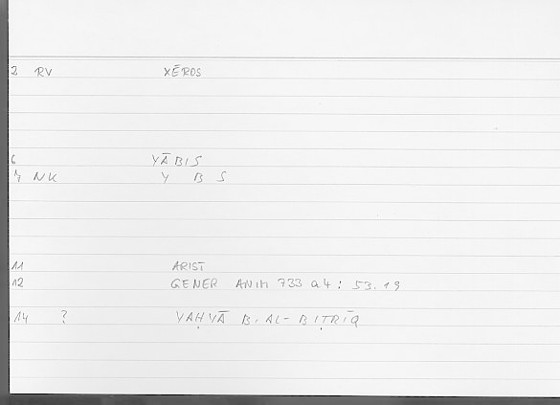 2 RV XĒROS
6 YĀBIS
7 NK Y B S
11 ARIST
12 GENER ANIM 733 a 4 : 53.19
14 ? YAḤYĀ B. AL-BIṬRĪQ